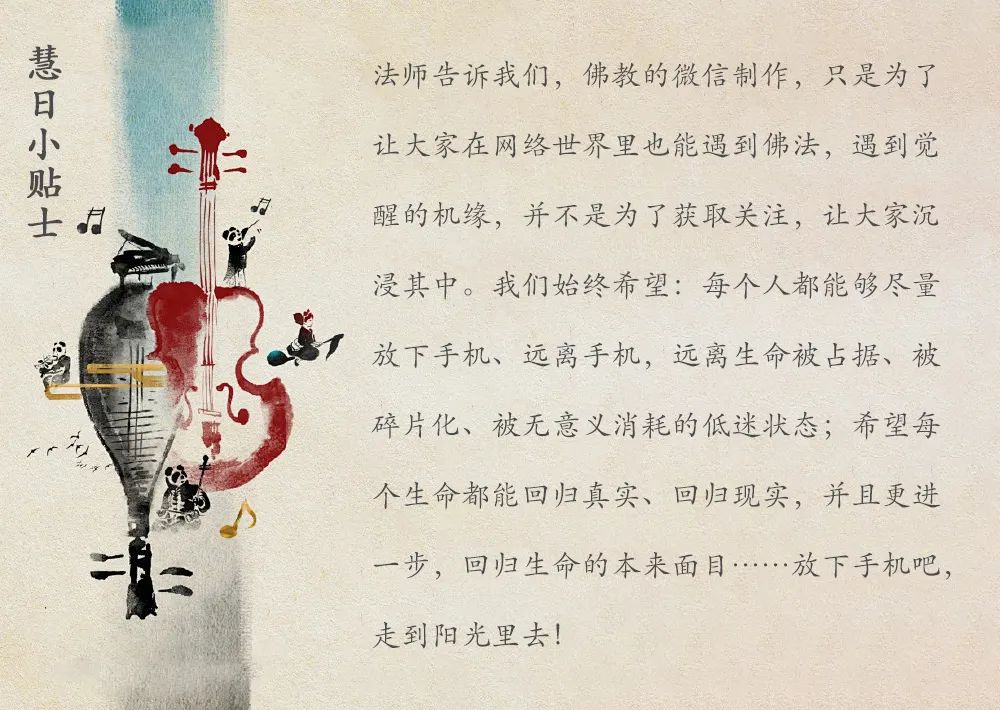 慧日小贴士
法师告诉我们，佛教的微信制作，只是为了
让大家在网络世界里也能遇到佛法，遇到觉
醒的机缘，并不是为了获取关注，让大家沉
浸其中。我们始终希望：每个人都能够尽量
放下手机、远离手机，远离生命被占据、被
碎片化、被无意义消耗的低迷状态；希望每
个生命都能回归真实、回归现实，并且更进
一步，回归生命的本来面目……放下手机吧，
走到阳光里去！